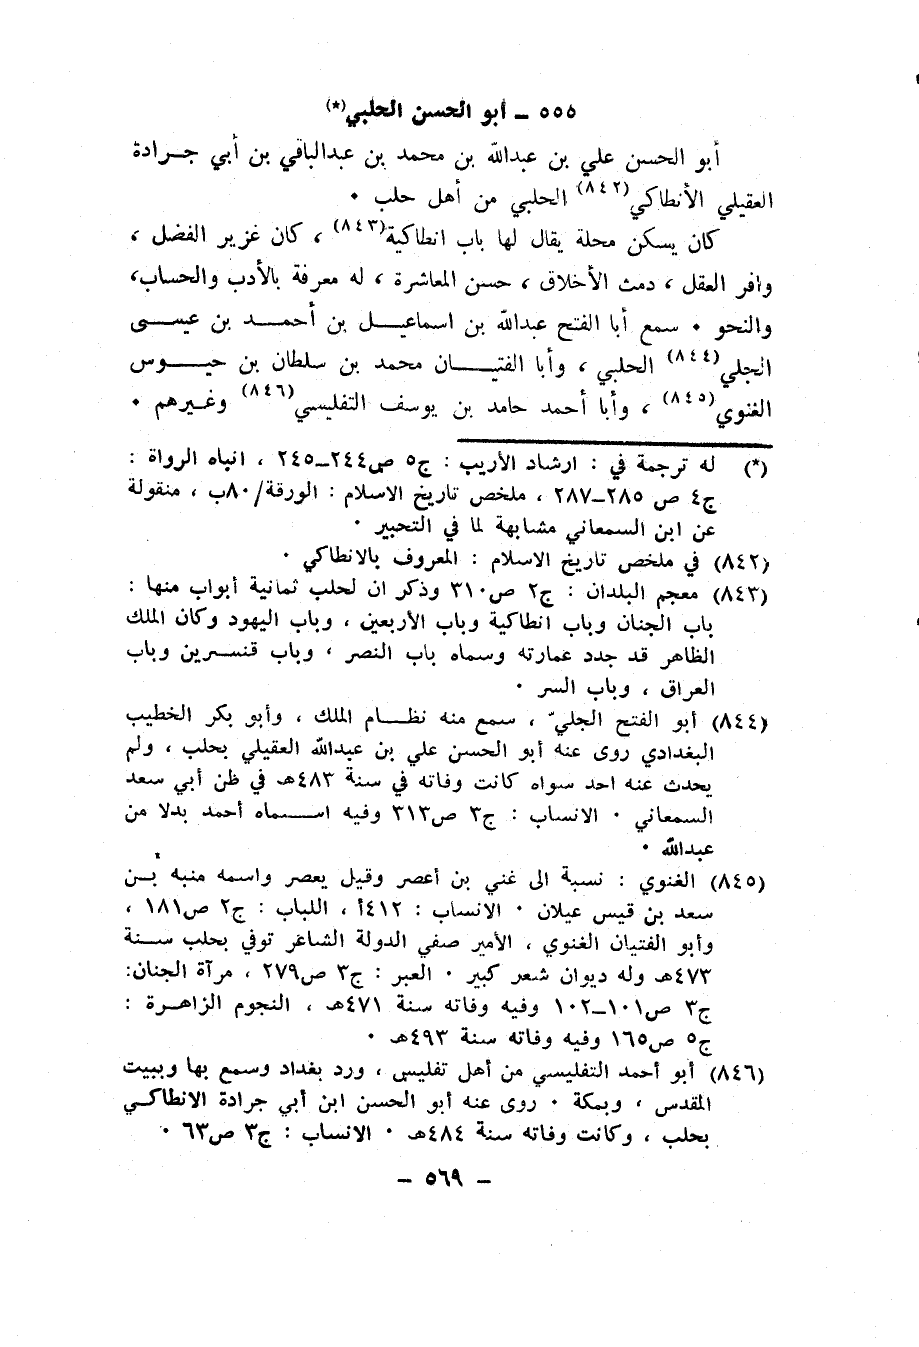 ٥٥٥ ـ أبو الحسن الحلبي(*)
أبو الحسن علي بن عبدالله بن محمد بن عبدالباقي بن أبي جـرادة
العقيلي الأنطاكي(٨٤٢) الحلبي من أهل حلب ٠
كان يسكن محلة يقال لها باب انطاكية(٨٤٣) ، كان غزير الفضل ،
وافر العقل ، دمث الأخلاق ، حسن المعاشرة ، له معرفة بالأدب والحساب،
والنحو ٠ سمع أبا الفتح عبدالله بن اسماعيـل بن أحمـد بن عيسـى
الجلي(٨٤٤) الحلبي ، وأبا الفتيـان محمد بن سلطان بن حيـوس
الغنوي(٨٤٥) ، وأبا أحمد حامد بن يوسف التفليسي(٨٤٦) وغيرهم ٠
(*) له ترجمة في : ارشاد الأريب : ج٥ ص٢٤٤ـ٢٤٥ ، انباه الرواة :
ج٤ ص ٢٨٥ـ٢٨٧ ، ملخص تاريخ الاسلام : الورقة/٨٠ب ، منقولة
عن ابن السمعاني مشابهة لما في التحبير ٠
(٨٤٢) في ملخص تاريخ الاسلام : المعروف بالانطاكي ٠
(٨٤٣) معجم البلدان : ج٢ ص٣١٠ وذكر ان لحلب ثمانية أبواب منها :
باب الجنان وباب انطاكية وباب الأربعين ، وباب اليهود وكان الملك
الظاهر قد جدد عمارته وسماه باب النصر ، وباب قنسـرين وباب
العراق ، وباب السر ٠
(٨٤٤) أبو الفتح الجليّ ، سمع منه نظـام الملك ، وأبو بكر الخطيب
البغدادي روى عنه أبو الحسن علي بن عبدالله العقيلي بحلب ، ولم
يحدث عنه احد سواه كانت وفاته في سنة ٤٨٣هـ في ظن أبي سعد
السمعاني ٠ الانساب : ج٣ ص٣١٣ وفيه اسـماه أحمد بدلا من
عبدالله ٠
(٨٤٥) الغنوي : نسبة الى غني بن أعصر وقيل يعصر واسمه منبه بـن
سعد بن قيس عيلان ٠ الانساب : ٤١٢أ ، اللباب : ج٢ ص١٨١ ،
وأبو الفتيان الغنوي ، الأمير صفي الدولة الشاعر توفي بحلب سـنة
٤٧٣هـ وله ديوان شعر كبير ٠ العبر : ج٣ ص٢٧٩ ، مرآة الجنان:
ج٣ ص١٠١ـ١٠٢ وفيه وفاته سنة ٤٧١هـ ، النجوم الزاهـرة :
ج٥ ص١٦٥ وفيه وفاته سنة ٤٩٣هـ ٠
(٨٤٦) أبو أحمد التفليسي من أهل تفليس ، ورد بغداد وسمع بها وببيت
المقدس ، وبمكة ٠ روى عنه أبو الحسن ابن أبي جرادة الانطاكـي
بحلب ، وكانت وفاته سنة ٤٨٤هـ ٠ الانساب : ج٣ ص٦٣ ٠
ـ ٥٦٩ ـ